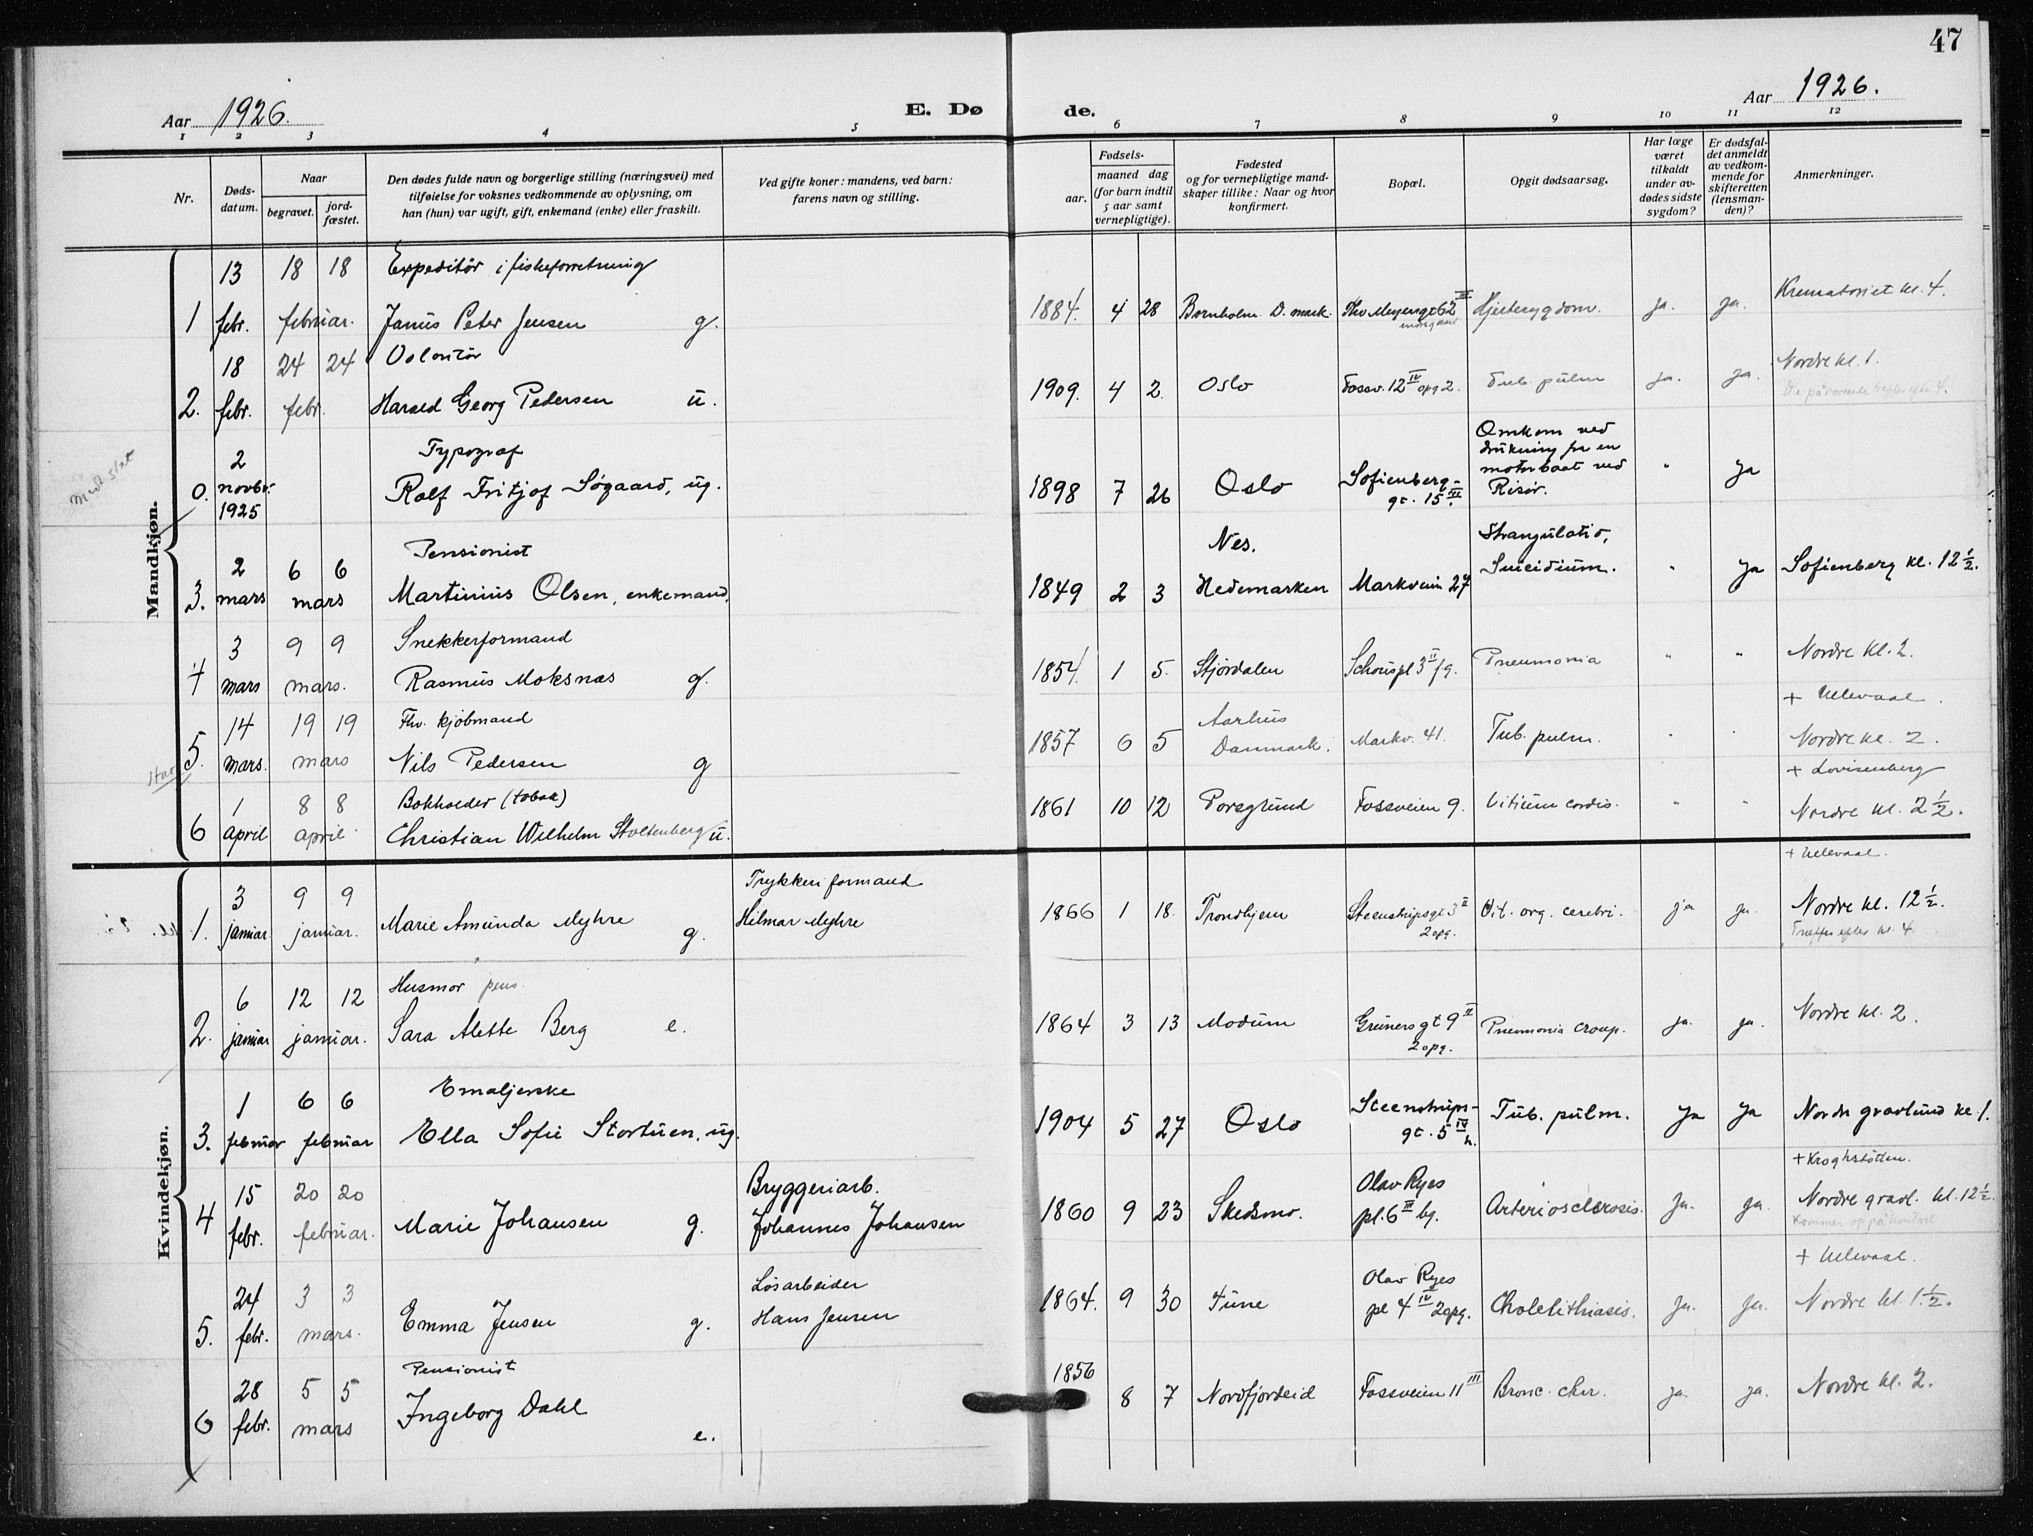 47
Aar 1926.
E. Dø
de.
Aar 1926.
1 2 3 4 5 6 7 8 9 10 11 12
Nr.
Døds-
datum.
Naar
begravet.
jord-
fæstet.
Den dødes fulde navn og borgerlige stilling (næringsvei) med
tilføielse for voksnes vedkommende av oplysning, om
han (hun) var ugift, gift, enkemand (enke) eller fraskilt.
Ved gifte koner: mandens, ved barn:
farens navn og stilling.
Fødsels-
aar.
maaned dag
(for barn indtil
5 aar samt
vernepligtige).
Fødested
og for vernepligtige mand-
skaper tillike: Naar og hvor
konfirmert.
Bopæl.
Opgit dødsaarsag.
Har læge
været
tilkaldt
under av-
dødes sidste
sygdom?
Er dødsfal-
det anmeldt
av vedkom-
mende for
skifteretten
(lensman-
den)?
Anmerkninger.
Mandkjøn.
13 18 18 Expeditør i fiskeforretning
1 febr. februar. Janus Peter Jensen g. 1884. 4 28 Bornholm D.mark Thv Meyersgt 62 III Hjertesygdom. ja. ja. Krematoriet kl. 4.
18 24 24 Volontør
2. febr. febr. Harald Georg Pedersen u. 1909. 4 2. Oslo Fossv. 12 IV opg 2. Tub. pulm ja. ja. Nordre kl. 1.
2 Typograf
0. novbr. 1925 Rolf Fritjof Søgaard, ug. 1898 7 26 Oslo Sofienberg-
gt. 15 III. Omkom ved
drukning fra en
motorbaat ved
Risør. " ja
2 6 6 Pensionist
3. mars mars Martinius Olsen, enkemand, 1849 2 3 Nes.
Hedemarken Markveien 27 Strangulatio,
Suicidium. " ja Sofienberg kl. 12 ½.
3 9 9 Snekkerformand
4 mars mars. Rasmus Moksnas g. 1854. 1 5. Stjørdalen Schouspl 3 II Pneumonia " " Nordre kl. 2.
+ Ullevaal.
14 19 19 Fhv. kjøbmand
5. mars. mars Nils Pedersen g 1857 6 5 Aarhus
Danmark. Markv. 41. Tub. pulm. " " Nordre kl. 2.
+ Lovisenberg
1 8 8 Bokholder (tobak)
6 april april. Christian Wilhelm Stoltenberg u. 1861 10 12 Porsgrund Fossveien 9. Vitium cordis. " " Nordre kl. 2 ½.
Kvindekjøn.
+ Ullevaal.
3 9 9 Trykkeri formand
1. januar januar. Marie Amunda Myhre g. Hilmar Myhre 1866 1 18. Trondhjem Steenstrupsgt 3 II
2 opg. Vit. org. cerebri. ja ja. Nordre kl. 12 ½.
Træffes efter kl. 4.
6 12 12 Husmor pens.
2. januar januar. Sara Alette Berg e. 1864 3 13 Modum Grüners gt 9 II
2 opg. Pneumonia croup. ja. ja. Nordre kl. 2.
1 6 6 Emaljerske
3. februar februar Ella Sofie Stortuen, ug. 1904 5 27 Oslo Steenstrups-
gt. 5 IV h. Tub. pulm. ja ja Nordre gravlund kl. 1.
+ Kroghstøtten.
15 20 20 Bryggeriarb.
4 febr. februar. Marie Johansen g. Johannes Johansen 1860 9 23 Skedsmo. Olav Ryes
pl. 6 III bg. Arteriosclerosis. ja. ja. Nordre gravl. kl. 12 ½.
Kommer op på kontoret
+ Ullevaal.
24 3 3 Løsarbeider
5. febr. mars. Emma Jensen g. Hans Jensen 1864. 9 30 Tune Olav Ryes
pl 4 IV 2 opg. Cholelithiasis. ja. ja. Nordre kl. 1 ½.
28 5 5 Pensionist
6 febr. mars Ingeborg Dahl e. 1856 8 7 Nordfjordeid Fossveien 11 III Bronc. chr. ja. ja. Nordre kl. 2.